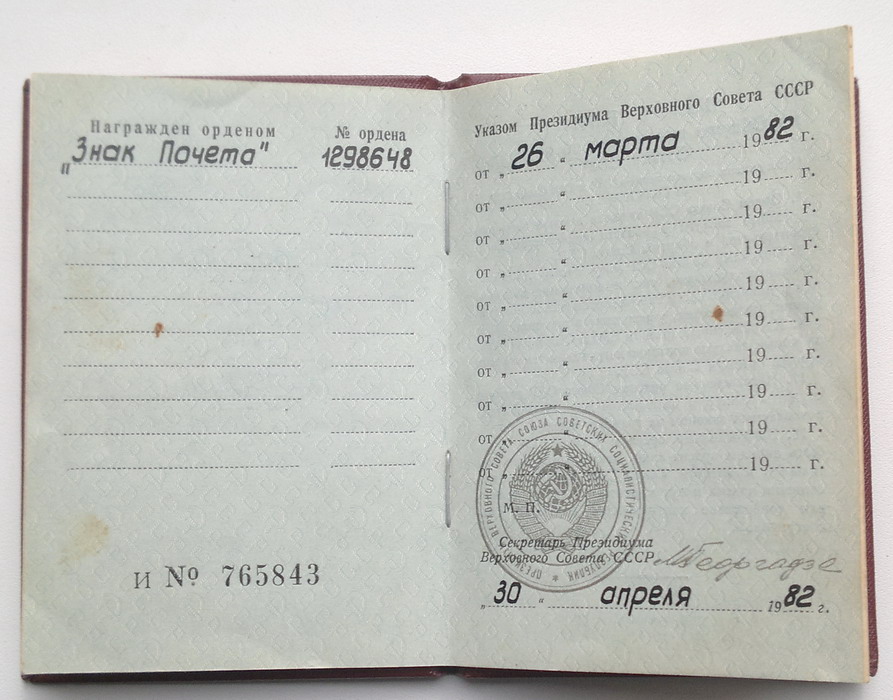 Награжден орденом № ордена
„Знак Почета" 1298648
И № 765843
Указом Президиума Верховного Совета СССР
от „ 26 “ марта 1982 г.
от „ “ 19 г.
от „ “ 19 г.
от „ “ 19 г.
от „ “ 19 г.
от „ “ 19 г.
от „ “ 19 г.
от „ “ 19 г.
от „ “ 19 г.
от „ “ 19 г.
ВЕРХОВНОГО СОВЕТА СОЮЗА СОВЕТСКИХ СОЦИАЛИСТИЧЕСКИХ
М. П.
Секретарь Президиума
Верховного Совета СССР МГеоргадзе
„ 30 “ апреля 1982 г.